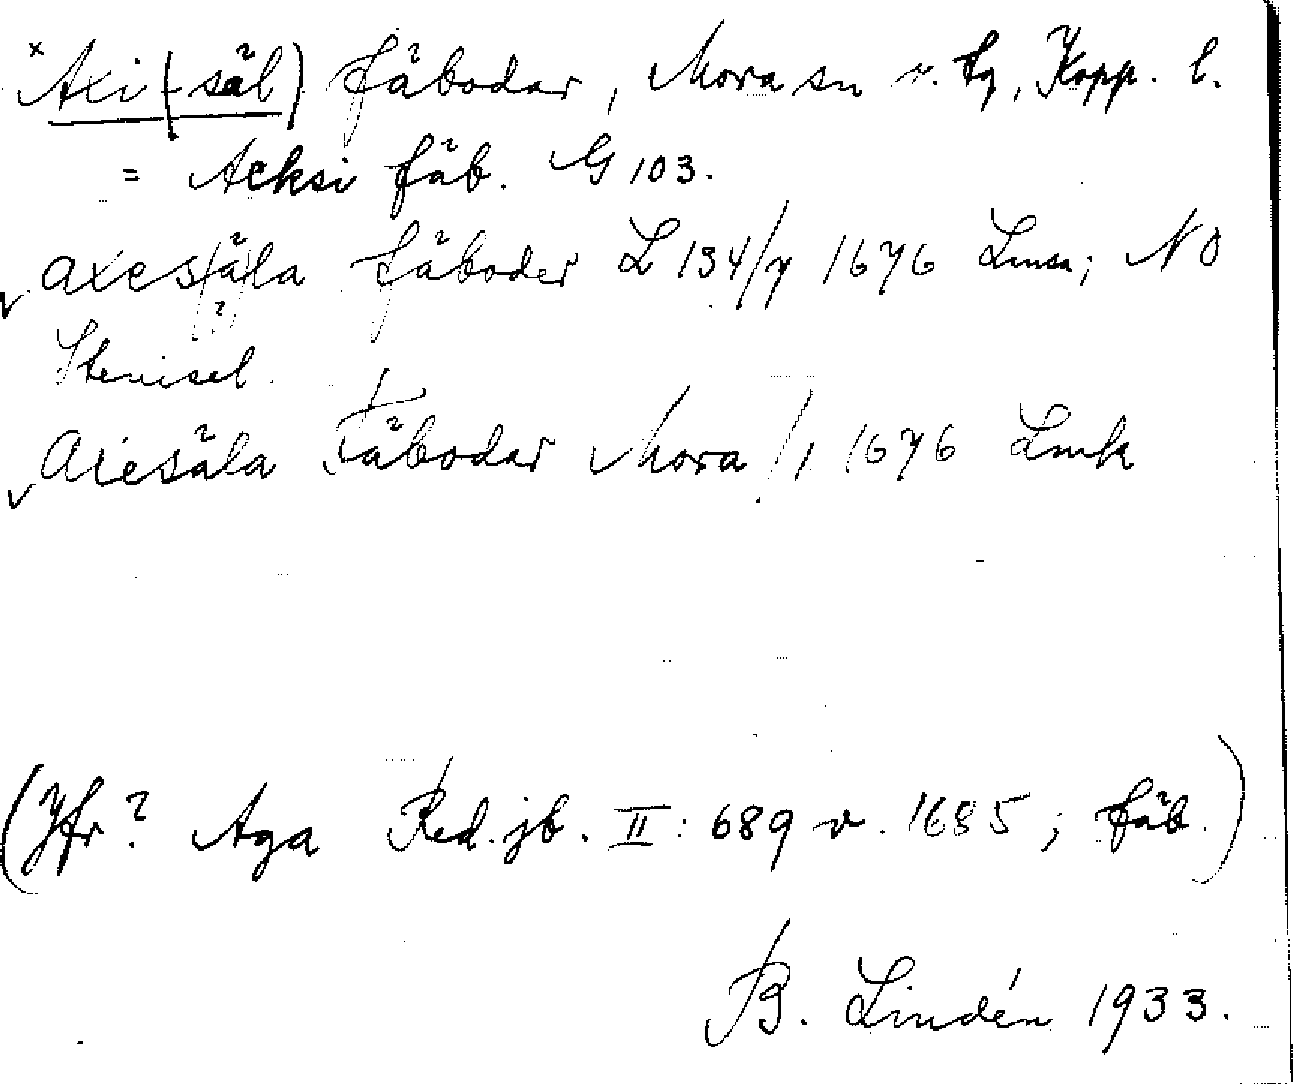 × Axi(-säl) fäbodar, Mora sn o. tg, Kopp. l.
= Acksi fäb. G 103.
axesäla fäboder L 134/7 1676 Lmsa; NO
(?)
Stenisel.
Aiesäla Fäbodar Mora /1 1676 Lmk
(Jfr? Aga Red. jb. II: 689 v. 1685; fäb.)
B. Lindén 1933.